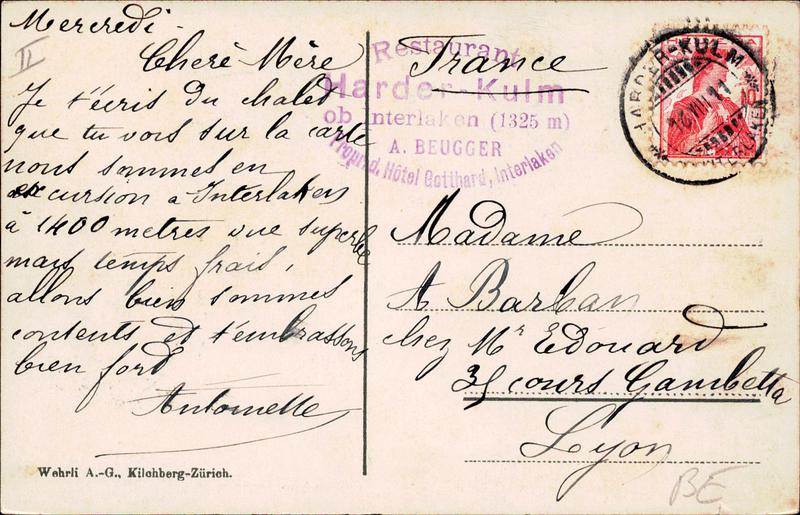 Mercredi
II
Cheré Mère
Je t'écris du chalet
que tu vois sur la carte
nous sommes en
excursion a Interlaken
à 1400 metres vue superbe
mais temps frais,
allons bien sommes
contents et t'embrassons
bien fort
Antoinette
Wehrli A.-G., Kilchberg-Zürich.
Restaurant
Harder-Kulm
ob Interlaken (1325 m)
A. BEUGGER
Propr. d. Hôtel Gotthard, Interlaken
France
HARDER-KULM
VIII 11
10
Madame
A Barban
chez Mr Edouard
35 cours Gambetta
Lyon
BE